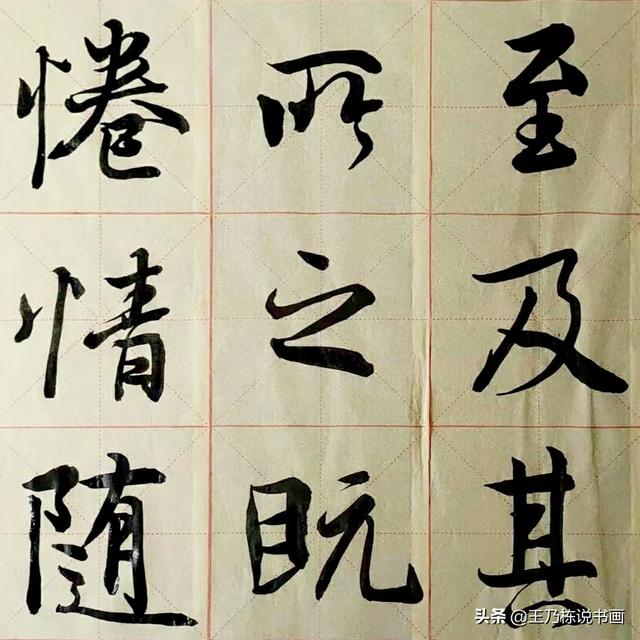 至及其
所之既
惓情随
头条 @王乃栋说书画